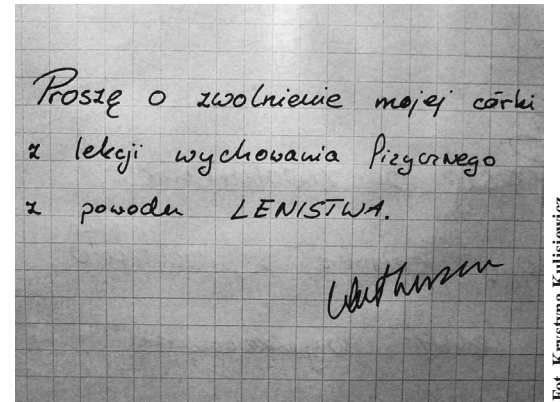 Proszę o zwolnienie mojej córki
z lekcji wychowania fizycznego
z powodu LENISTWA.
Fot. Krystyna Kulisiewicz